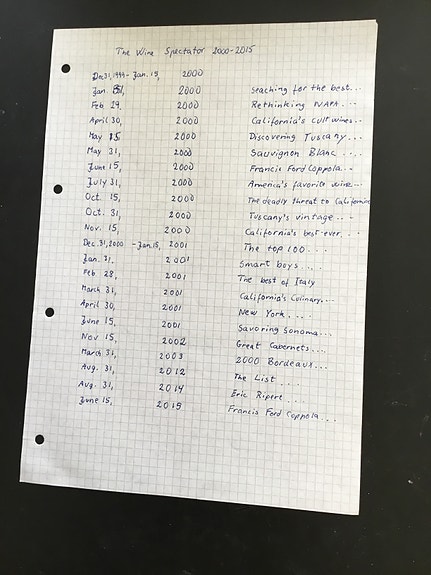 The Wine Spectator 2000-2015
Dec 31, 1999 - Jan. 15, 2000
Jan. 31, 2000 Seaching for the best...
Feb 29, 2000 Rethinking NAPA...
April 30, 2000 California's cult wines...
May 15 2000 Discovering Tuscany...
May 31, 2000 Sauvignon Blanc...
June 15, 2000 Francis Ford Coppola..
July 31, 2000 America's favorite wine...
Oct. 15, 2000 The deadly threat to California
Oct. 31, 2000 Tuscany's vintage...
Nov. 15, 2000 California's best-ever...
Dec. 31, 2000 - Jan. 15, 2001 The top 100...
Jan. 31. 2001 Smart boys....
Feb 28, 2001 The best of Italy
March 31, 2001 California's Culinary...
April 30, 2001 New York....
June 15, 2001 Savoring Sonoma...
Nov 15, 2002 Great Cabernets...
March 31, 2003 2000 Bordeaux...
Aug. 31, 2012 The List....
Aug. 31, 2014 Eric Ripert....
June 15, 2015 Francis Ford Coppola...